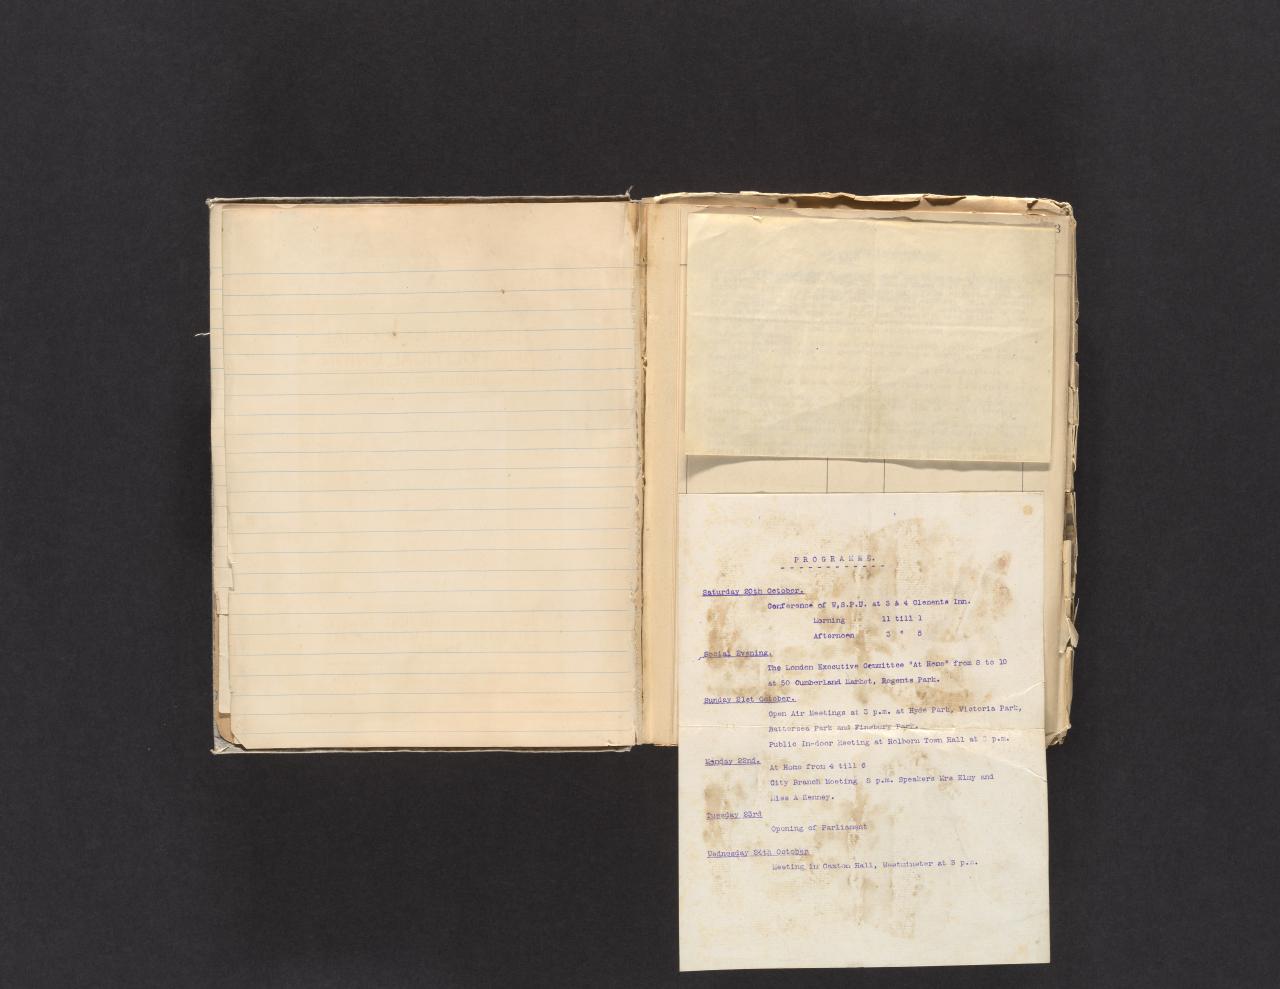 3
PROGRAMME.
Saturday 20th October.
Conference of W.S.P.U. at 3 & 4 Clements Inn.
Morning 11 till 1
Afternoon 3 " 5
Social Evening.
The London Executive Committee "At Home" from 8 to 10
at 50 Cumberland Market, Regents Park.
Sunday 21st October.
Open Air Meetings at 3 p.m. at Hyde Park, Victoria Park,
Battersea Park and Finsbury Park.
Public In-door Meeting at Holborn Town Hall at p.m.
Monday 22nd.
At Home from 4 till 6
City Branch Meeting 8 p.m. Speakers Mrs Elmy and
Miss A Kenney.
Tuesday 23rd
Opening of Parliament
Wednesday 24th October
Meeting in Caxton Hall, Westminster at 3 p.m.